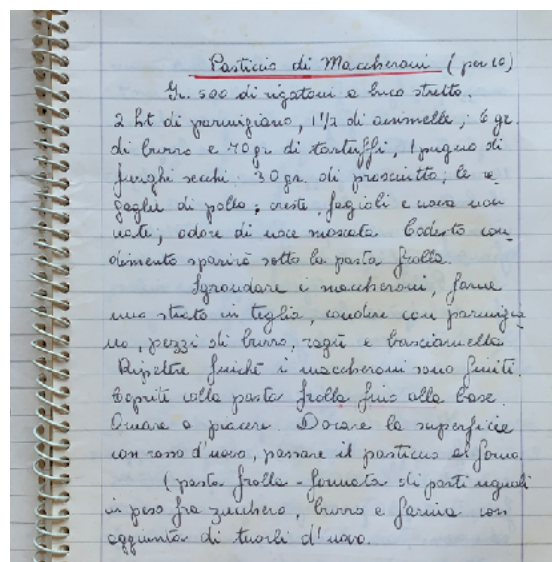 Pasticcio di Maccheroni (per 10)
Gr. 500 di rigatoni a buco stretto.
2 ht di parmigiano, 1 1/2 di animelle; 6 gr.
di burro e 70 gr. di tartuffi, 1 pugno di
funghi secchi. 30 gr. di prosciutto; le re_
gaglie di pollo; creste, fagioli e uova non
nate; odore di noce moscata. Codesto con_
dimento sparirà sotto la pasta frolla.
Sgrondare i maccheroni, farne
uno strato in teglia, condire con parmigia
no, pezzi di burro, ragù e basciamella
Ripetere finchè i maccheroni sono finiti.
Coprite colla pasta frolla fino alla base.
Ornare a piacere. Dorare la superficie
con rosso d'uovo, passare il pasticcio al forno.
(pasta frolla - formata di parti uguali
in peso fra zucchero, burro e farina con
aggiunta di tuorli d'uovo.